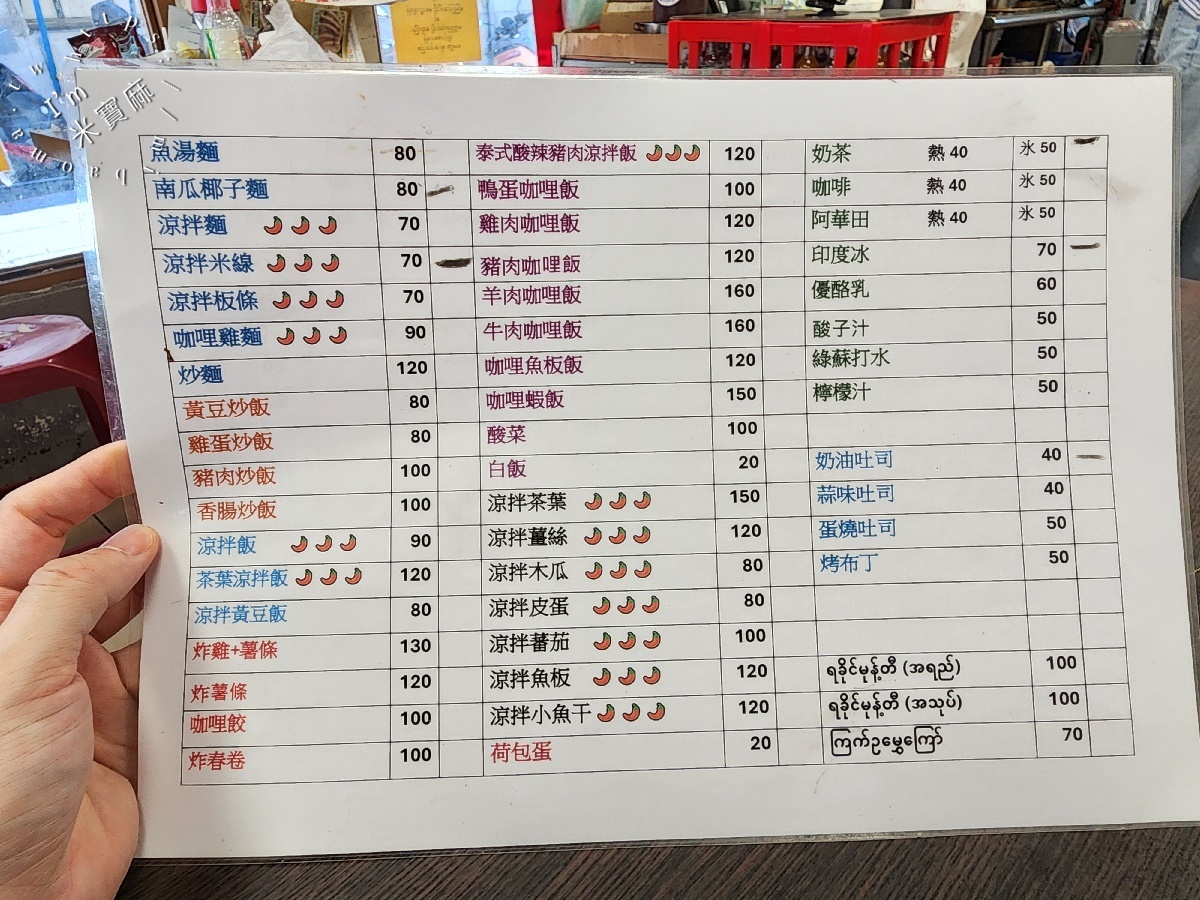 魚湯麵 80
南瓜椰子麵 80
涼拌麵 70
涼拌米線 70
涼拌板條 70
咖哩雞麵 90
炒麵 120
黃豆炒飯 80
雞蛋炒飯 80
豬肉炒飯 100
香腸炒飯 100
涼拌飯 90
茶葉涼拌飯 120
涼拌黃豆飯 80
炸雞+薯條 130
炸薯條 120
咖哩餃 100
炸春卷 100
泰式酸辣豬肉涼拌飯 120
鴨蛋咖哩飯 100
雞肉咖哩飯 120
豬肉咖哩飯 120
羊肉咖哩飯 160
牛肉咖哩飯 160
咖哩魚板飯 120
咖哩蝦飯 150
酸菜 100
白飯 20
涼拌茶葉 150
涼拌薑絲 120
涼拌木瓜 80
涼拌皮蛋 80
涼拌蕃茄 100
涼拌魚板 120
涼拌小魚干 120
荷包蛋 20
奶茶 熱 40 氷 50
咖啡 熱 40 氷 50
阿華田 熱 40 氷 50
印度冰 70
優酪乳 60
酸子汁 50
綠蘇打水 50
檸檬汁 50
奶油吐司 40
蒜味吐司 40
蛋燒吐司 50
烤布丁 50
ရခိုင်မုန့်တီ (အရည်) 100
ရခိုင်မုန့်တီ (အသုပ်) 100
ကြက်ဥမွှေကြော် 70
I'm
米寶麻